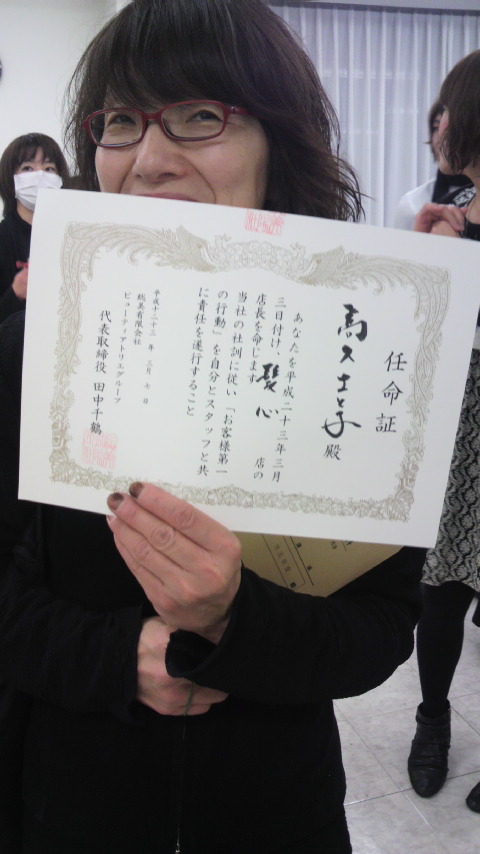 任命証
殿
あなたを平成二十三年三月
三日付け、髪心店の
店長を命じます
当社の社訓に従い「お客様第一
の行動」を自分とスタッフと共
に責任を遂行すること
平成二十三年三月七日
総美有限会社
ビューティアトリエグループ
代表取締役 田中千鶴